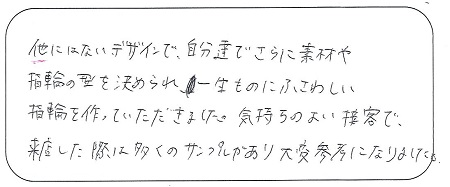 他にはないデザインで、自分達でさらに素材や
指輪の型を決められ 一生ものにふさわしい
指輪を作っていただきました。気持ちのよい接客で、
来店した際は多くのサンプルがあり大変参考になりました。